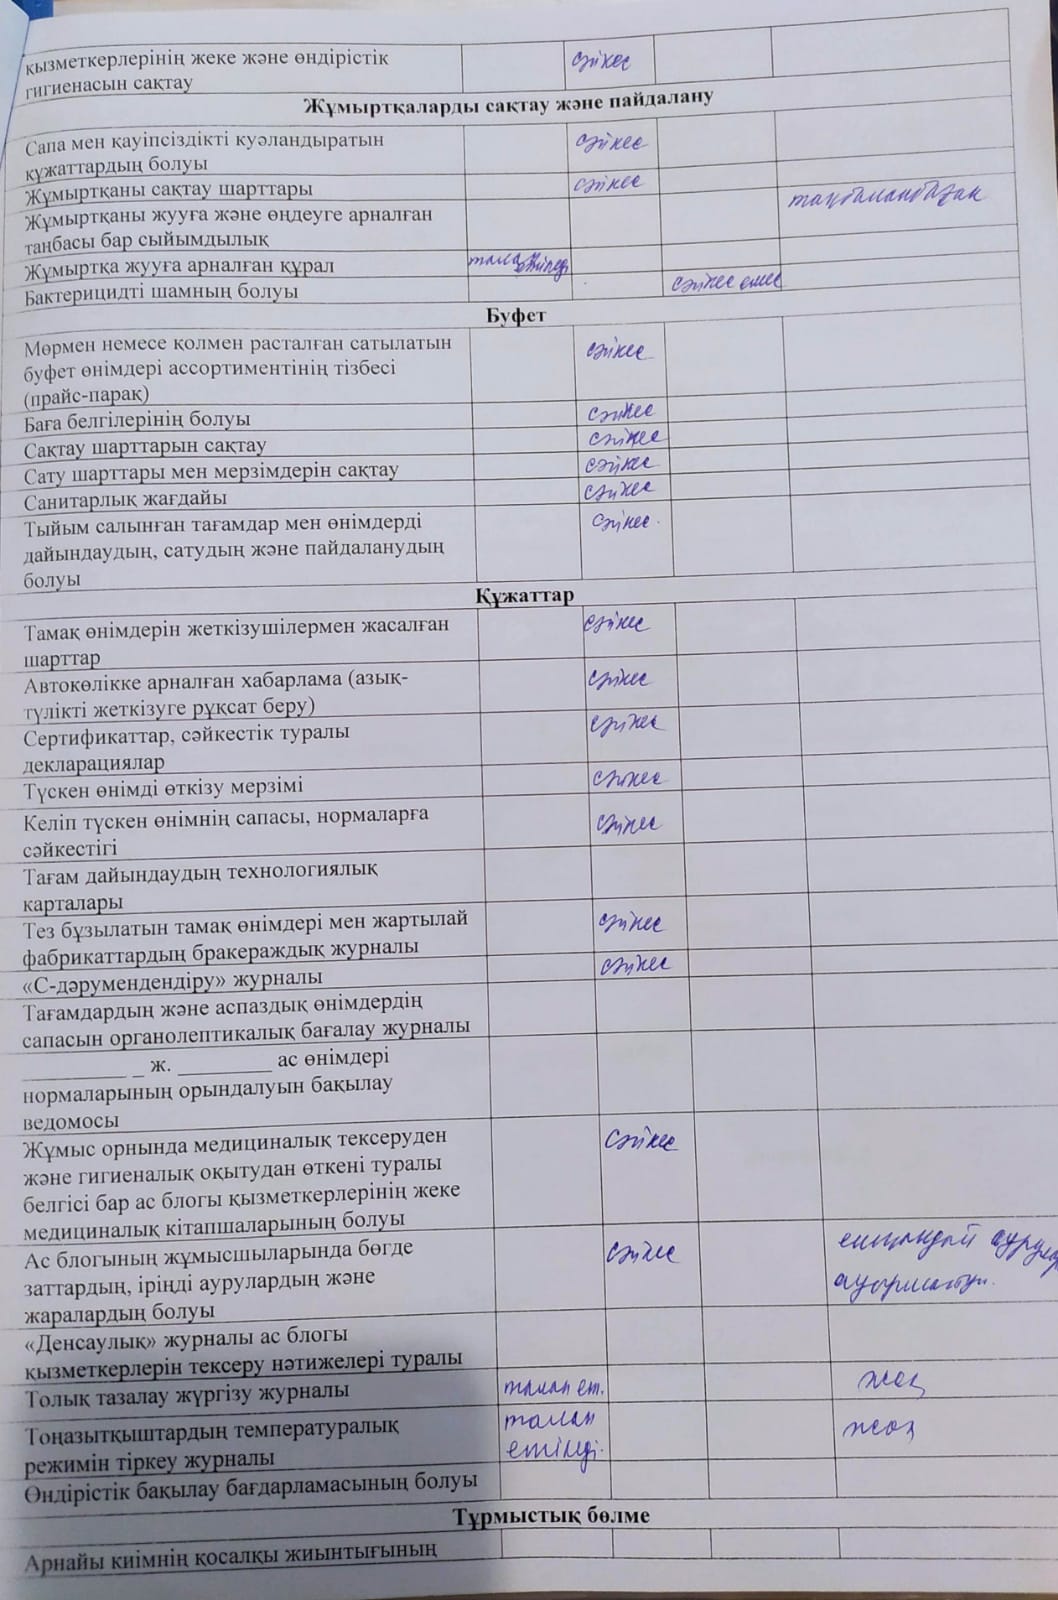 қызметкерлерінің жеке және өндірістік
гигиенасын сақтау
сәйкес
Жұмыртқаларды сақтау және пайдалану
Сапа мен қауіпсіздікті куәландыратын
құжаттардың болуы
сәйкес
Жұмыртқаны сақтау шарттары
сәйкес
Жұмыртқаны жууға және өңдеуге арналған
таңбасы бар сыйымдылық
таңбаланбаған
Жұмыртқа жууға арналған құрал
талап етіледі
Бактерицидті шамның болуы
сәйкес емес
Буфет
Мөрмен немесе қолмен расталған сатылатын
буфет өнімдері ассортиментінің тізбесі
(прайс-парақ)
сәйкес
Баға белгілерінің болуы
сәйкес
Сақтау шарттарын сақтау
сәйкес
Сату шарттары мен мерзімдерін сақтау
сәйкес
Санитарлық жағдайы
сәйкес
Тыйым салынған тағамдар мен өнімдерді
дайындаудың, сатудың және пайдаланудың
болуы
сәйкес.
Құжаттар
Тамақ өнімдерін жеткізушілермен жасалған
шарттар
сәйкес
Автокөлікке арналған хабарлама (азық-
түлікті жеткізуге рұқсат беру)
сәйкес
Сертификаттар, сәйкестік туралы
декларациялар
сәйкес
Түскен өнімді өткізу мерзімі
сәйкес
Келіп түскен өнімнің сапасы, нормаларға
сәйкестігі
сәйкес
Тағам дайындаудың технологиялық
карталары
Тез бұзылатын тамақ өнімдері мен жартылай
фабрикаттардың бракераждық журналы
сәйкес
«С-дәрумендендіру» журналы
сәйкес
Тағамдардың және аспаздық өнімдердің
сапасын органолептикалық бағалау журналы
__________ _ ж. _________ ас өнімдері
нормаларының орындалуын бақылау
ведомосы
Жұмыс орнында медициналық тексеруден
және гигиеналық оқытудан өткені туралы
белгісі бар ас блогы қызметкерлерінің жеке
медициналық кітапшаларының болуы
сәйкес
Ас блогының жұмысшыларында бөгде
заттардың, іріңді аурулардың және
жаралардың болуы
сәйкес
ешқандай
«Денсаулық» журналы ас блогы
қызметкерлерін тексеру нәтижелері туралы
Толық тазалау жүргізу журналы
талап ет.
жоқ
Тоңазытқыштардың температуралық
режимін тіркеу журналы
талап
етіледі.
жоқ
Өндірістік бақылау бағдарламасының болуы
Тұрмыстық бөлме
Арнайы киімнің қосалқы жиынтығының